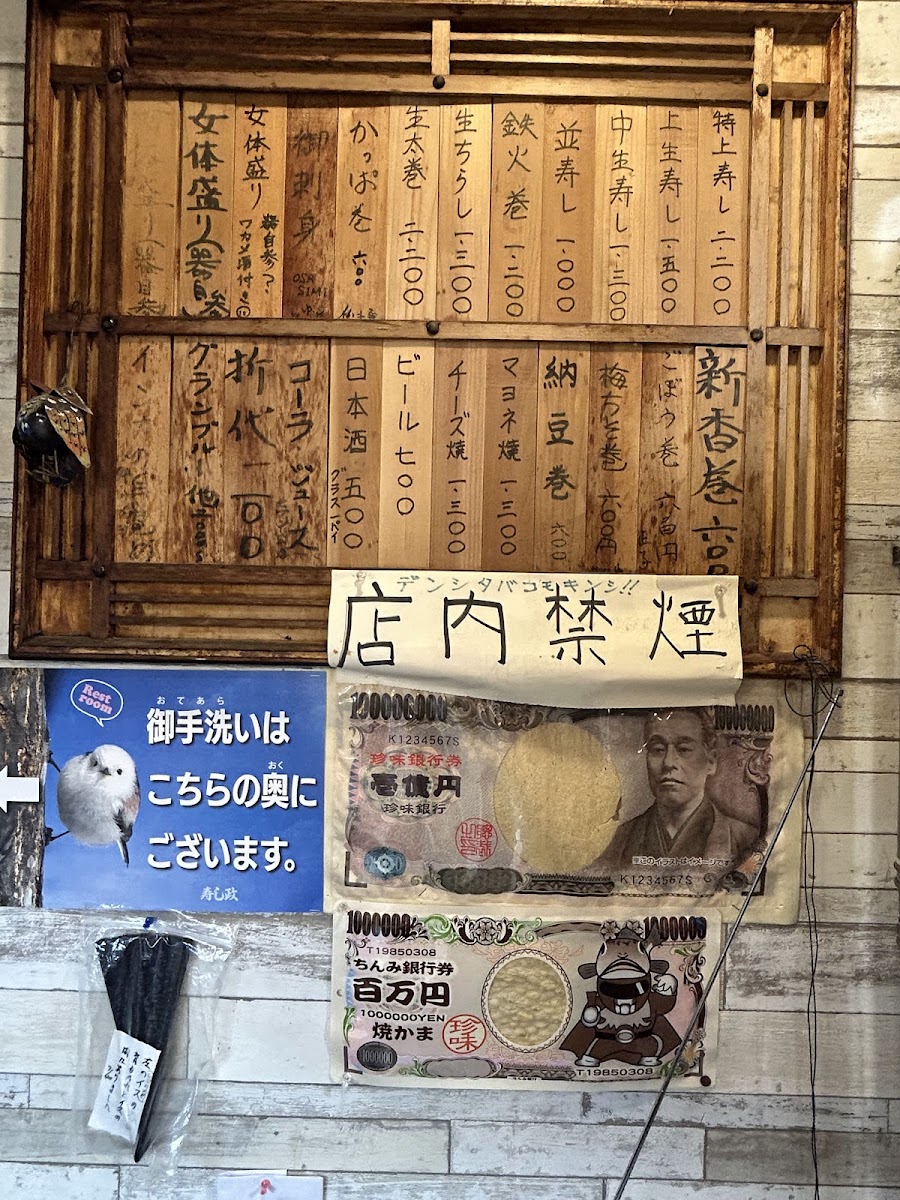 特上寿し 二・二〇〇
上生寿し 一・五〇〇
中生寿し 一・三〇〇
並寿し 一・〇〇〇
鉄火巻 一・二〇〇
生ちらし 一・三〇〇
生太巻 二・二〇〇
かっぱ巻 六〇〇
御刺身
OSA
SIMI
女体盛り
器自参?
ワカメ酒付き
女体盛り(器自参
盛り(器自参
新香巻 六〇〇
ごぼう巻 六百円
梅ちそ巻 六〇〇円
納豆巻 六〇〇
マヨネ焼 一・三〇〇
チーズ焼 一・三〇〇
ビール 七〇〇
日本酒 五〇〇
グラス一パイ
コーラ ジュース
折代 一〇〇
グランブルー他
デンシタバコモキンシ!!
店内禁煙
Rest
room
おてあら
御手洗いは
おく
こちらの奥に
ございます。
寿し政
100000000
100000000
K1234567S
珍味銀行券
壱億円
珍味銀行
※このイラストはイメージです
K1234567S
1000000
1000000
T19850308
ちんみ銀行券
百万円
1000000YEN
焼かま
珍味
1000000
T19850308